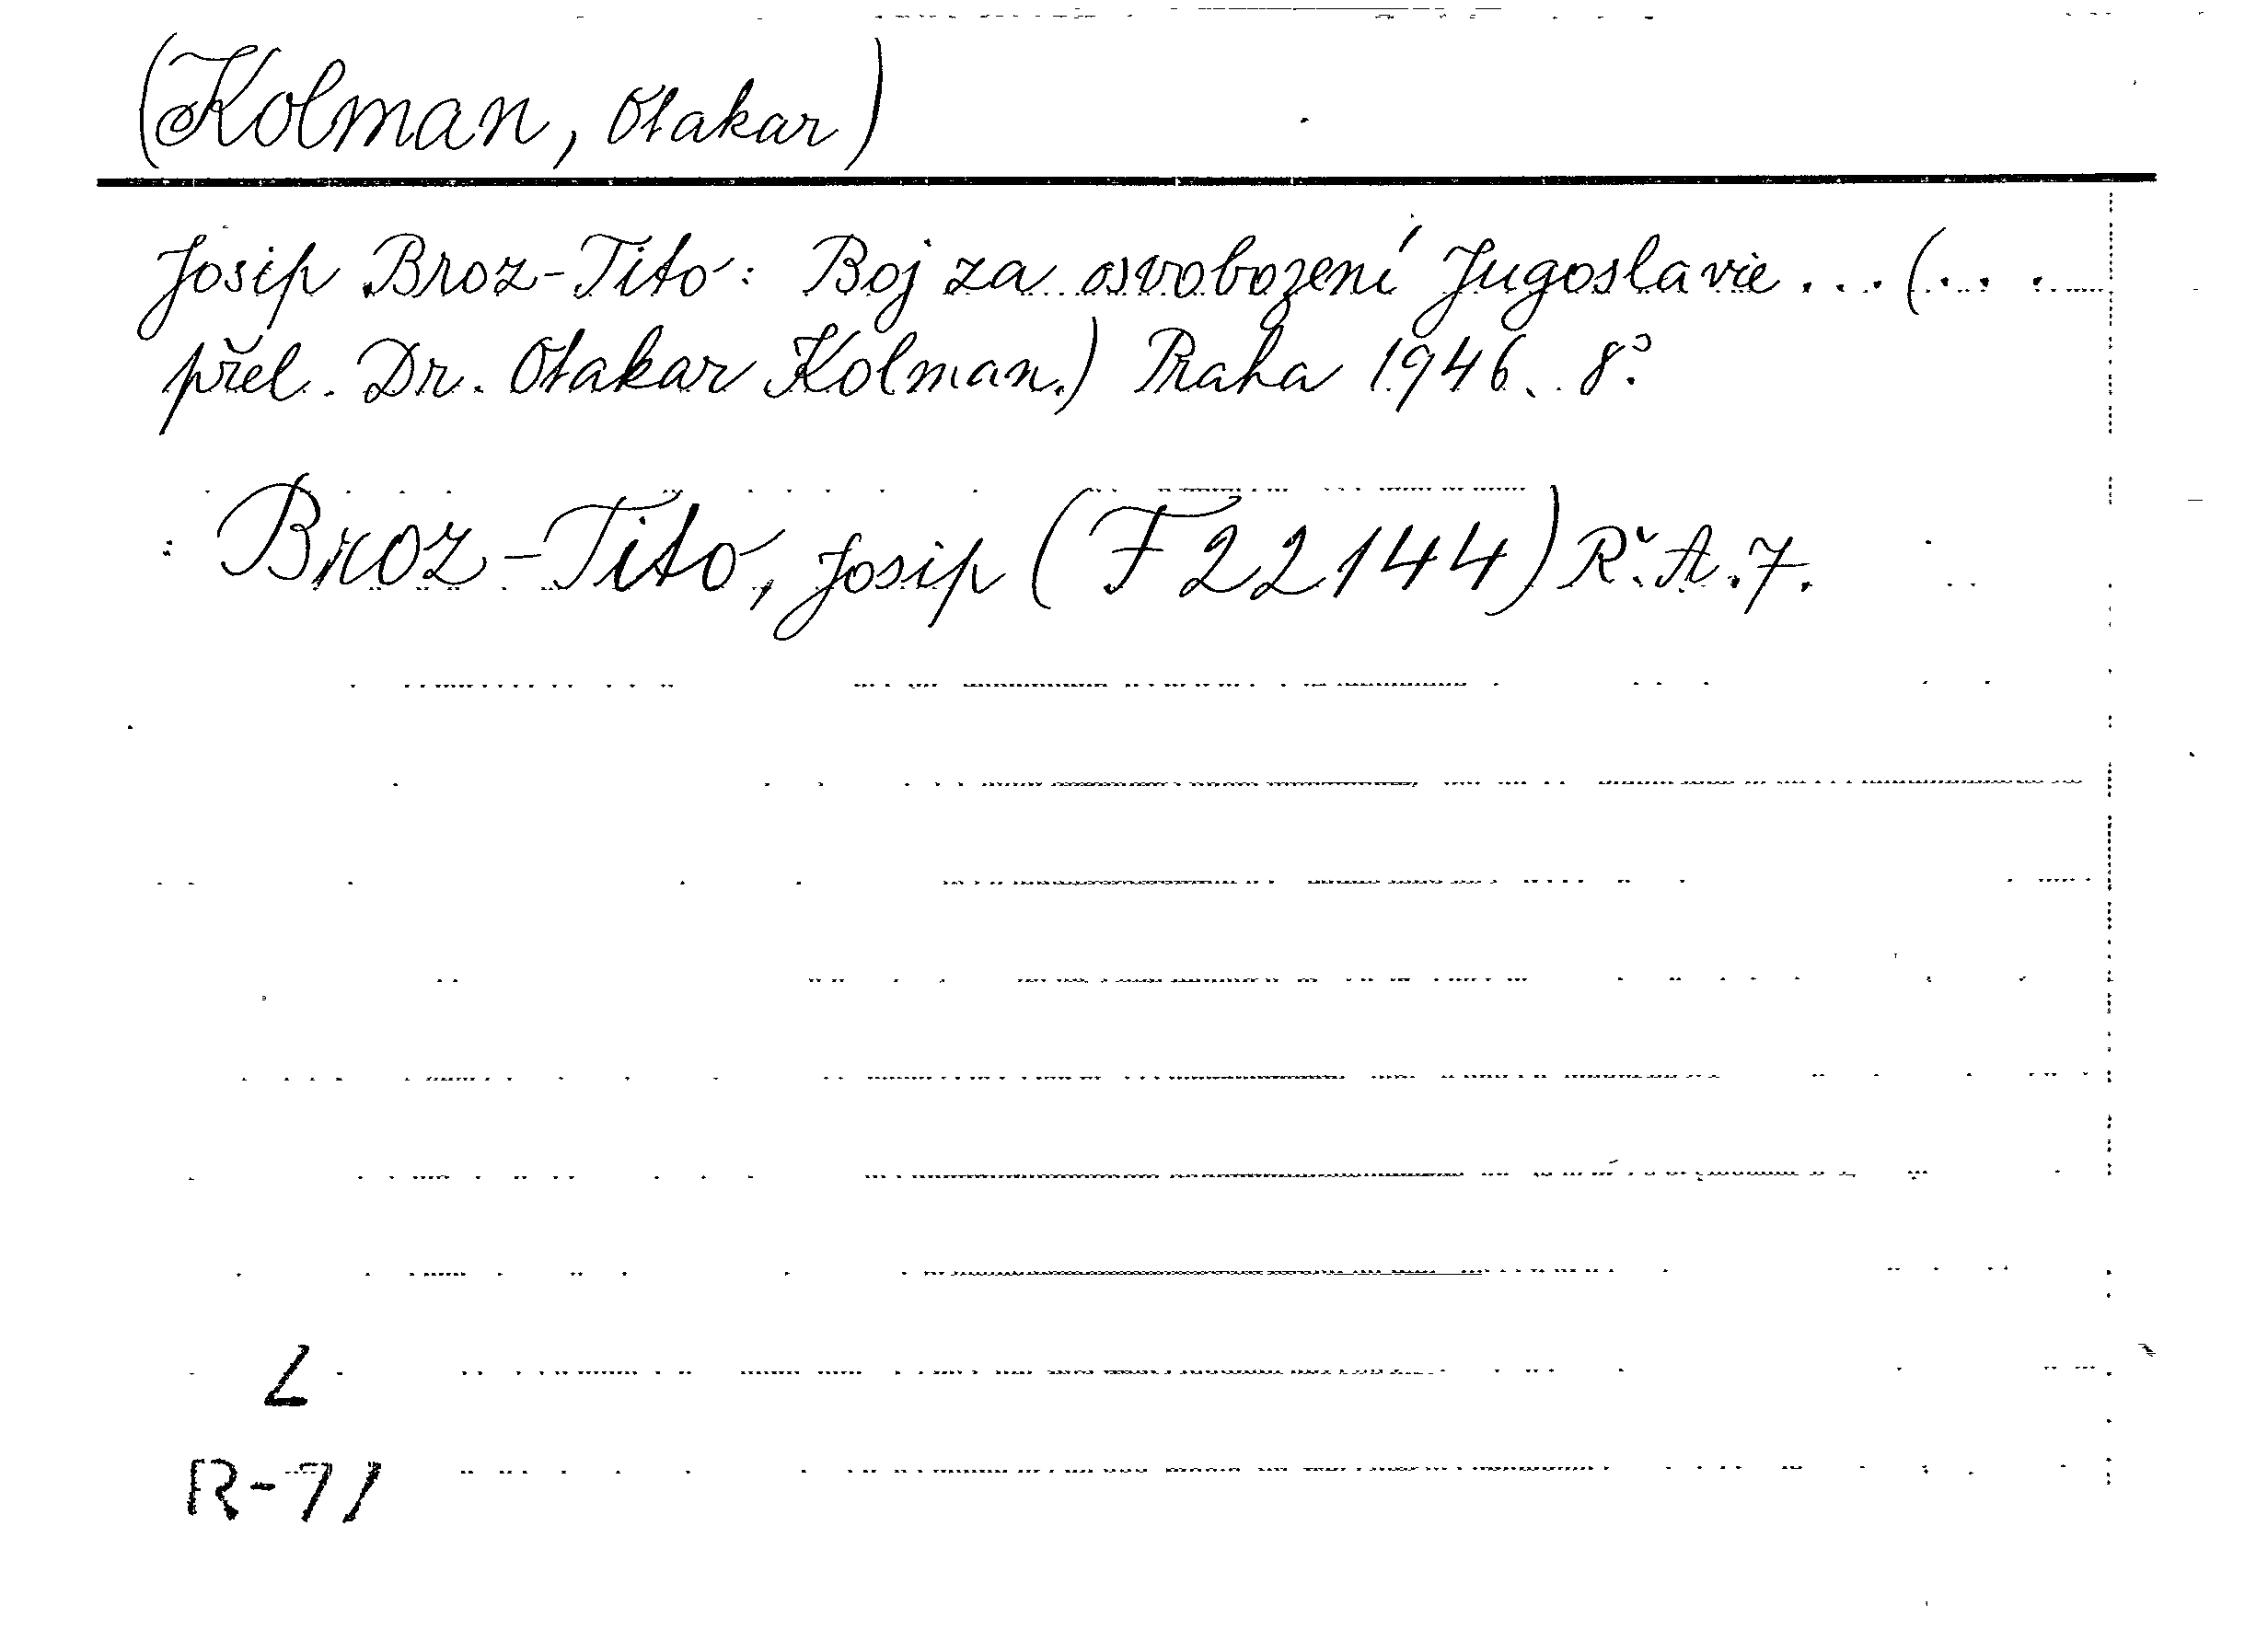 (Kolman, Otakar)
Josip Broz-Tito: Boj za osvobození Jugoslavie...(...
přel. Dr. Otakar Kolman.) Praha 1946. 8°.
: Broz-Tito, Josip (F 22144) Ř. A. 7.
L
R-71